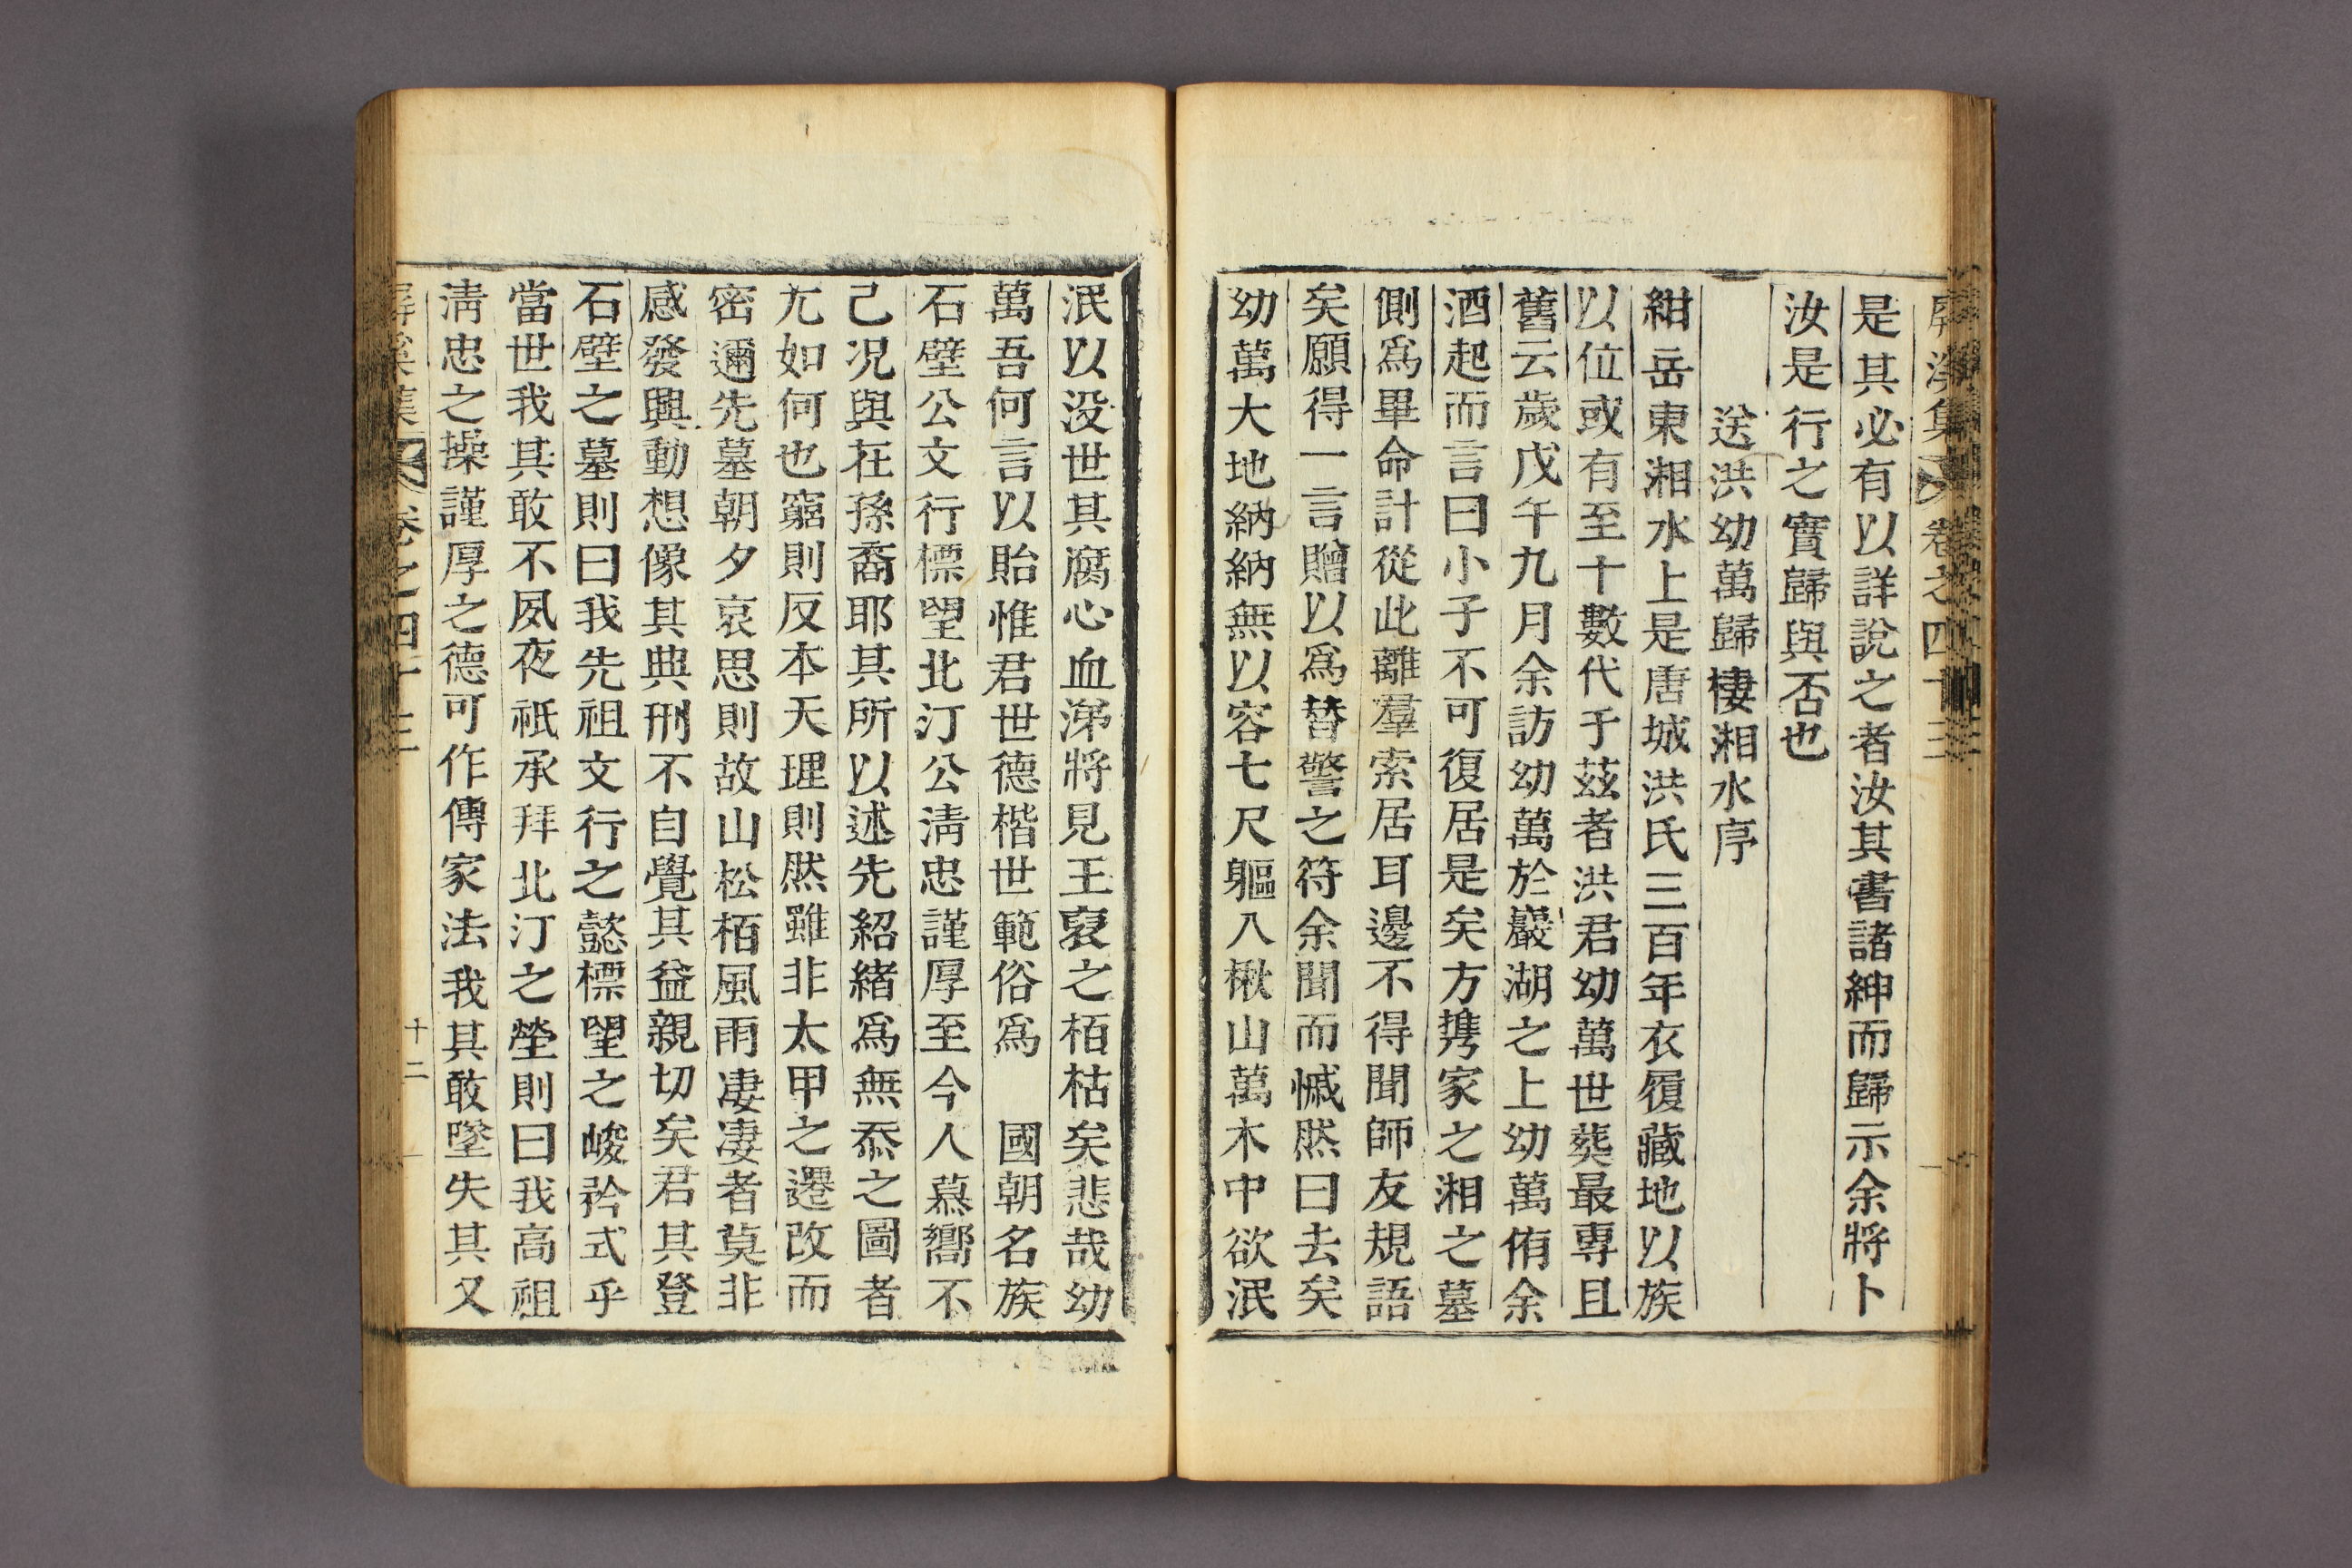 屛溪集 卷之四十三
是其必有以詳說之者汝其書諸紳而歸示余將卜
汝是行之實歸與否也
送洪幼萬歸棲湘水序
紺岳東湘水上是唐城洪氏三百年衣履藏地以族
以位或有至十數代于茲者洪君幼萬世葬最專且
舊云歲戊午九月余訪幼萬於巖湖之上幼萬侑余
酒起而言曰小子不可復居是矣方携家之湘之墓
側爲畢命計從此離羣索居耳邊不得聞師友規語
矣願得一言贈以爲瞽警之符余聞而慽然曰去矣
幼萬大地納納無以容七尺軀八楸山萬木中欲泯
泯以没世其腐心血涕將見王裒之栢枯矣悲哉幼
萬吾何言以貽惟君世世德楷世範俗爲 國朝名族
石壁公文行標望北汀公淸忠謹厚至今人慕嚮不
已况與在孫裔耶其所以述先紹緒爲無忝之圖者
尤如何也窮則反本天理則然雖非太甲之遷改而
密邇先墓朝夕哀思則故山松栢風雨凄凄者莫非
感發興動想像其典刑不自覺其益親切矣君其登
石壁之墓則曰我先祖文行之懿標望之峻矜式乎
當世我其敢不夙夜祇承拜北汀之塋則曰我高祖
淸忠之操謹厚之德可作傳家法我其敢墜失其又
屛溪集 卷之四十三 十二